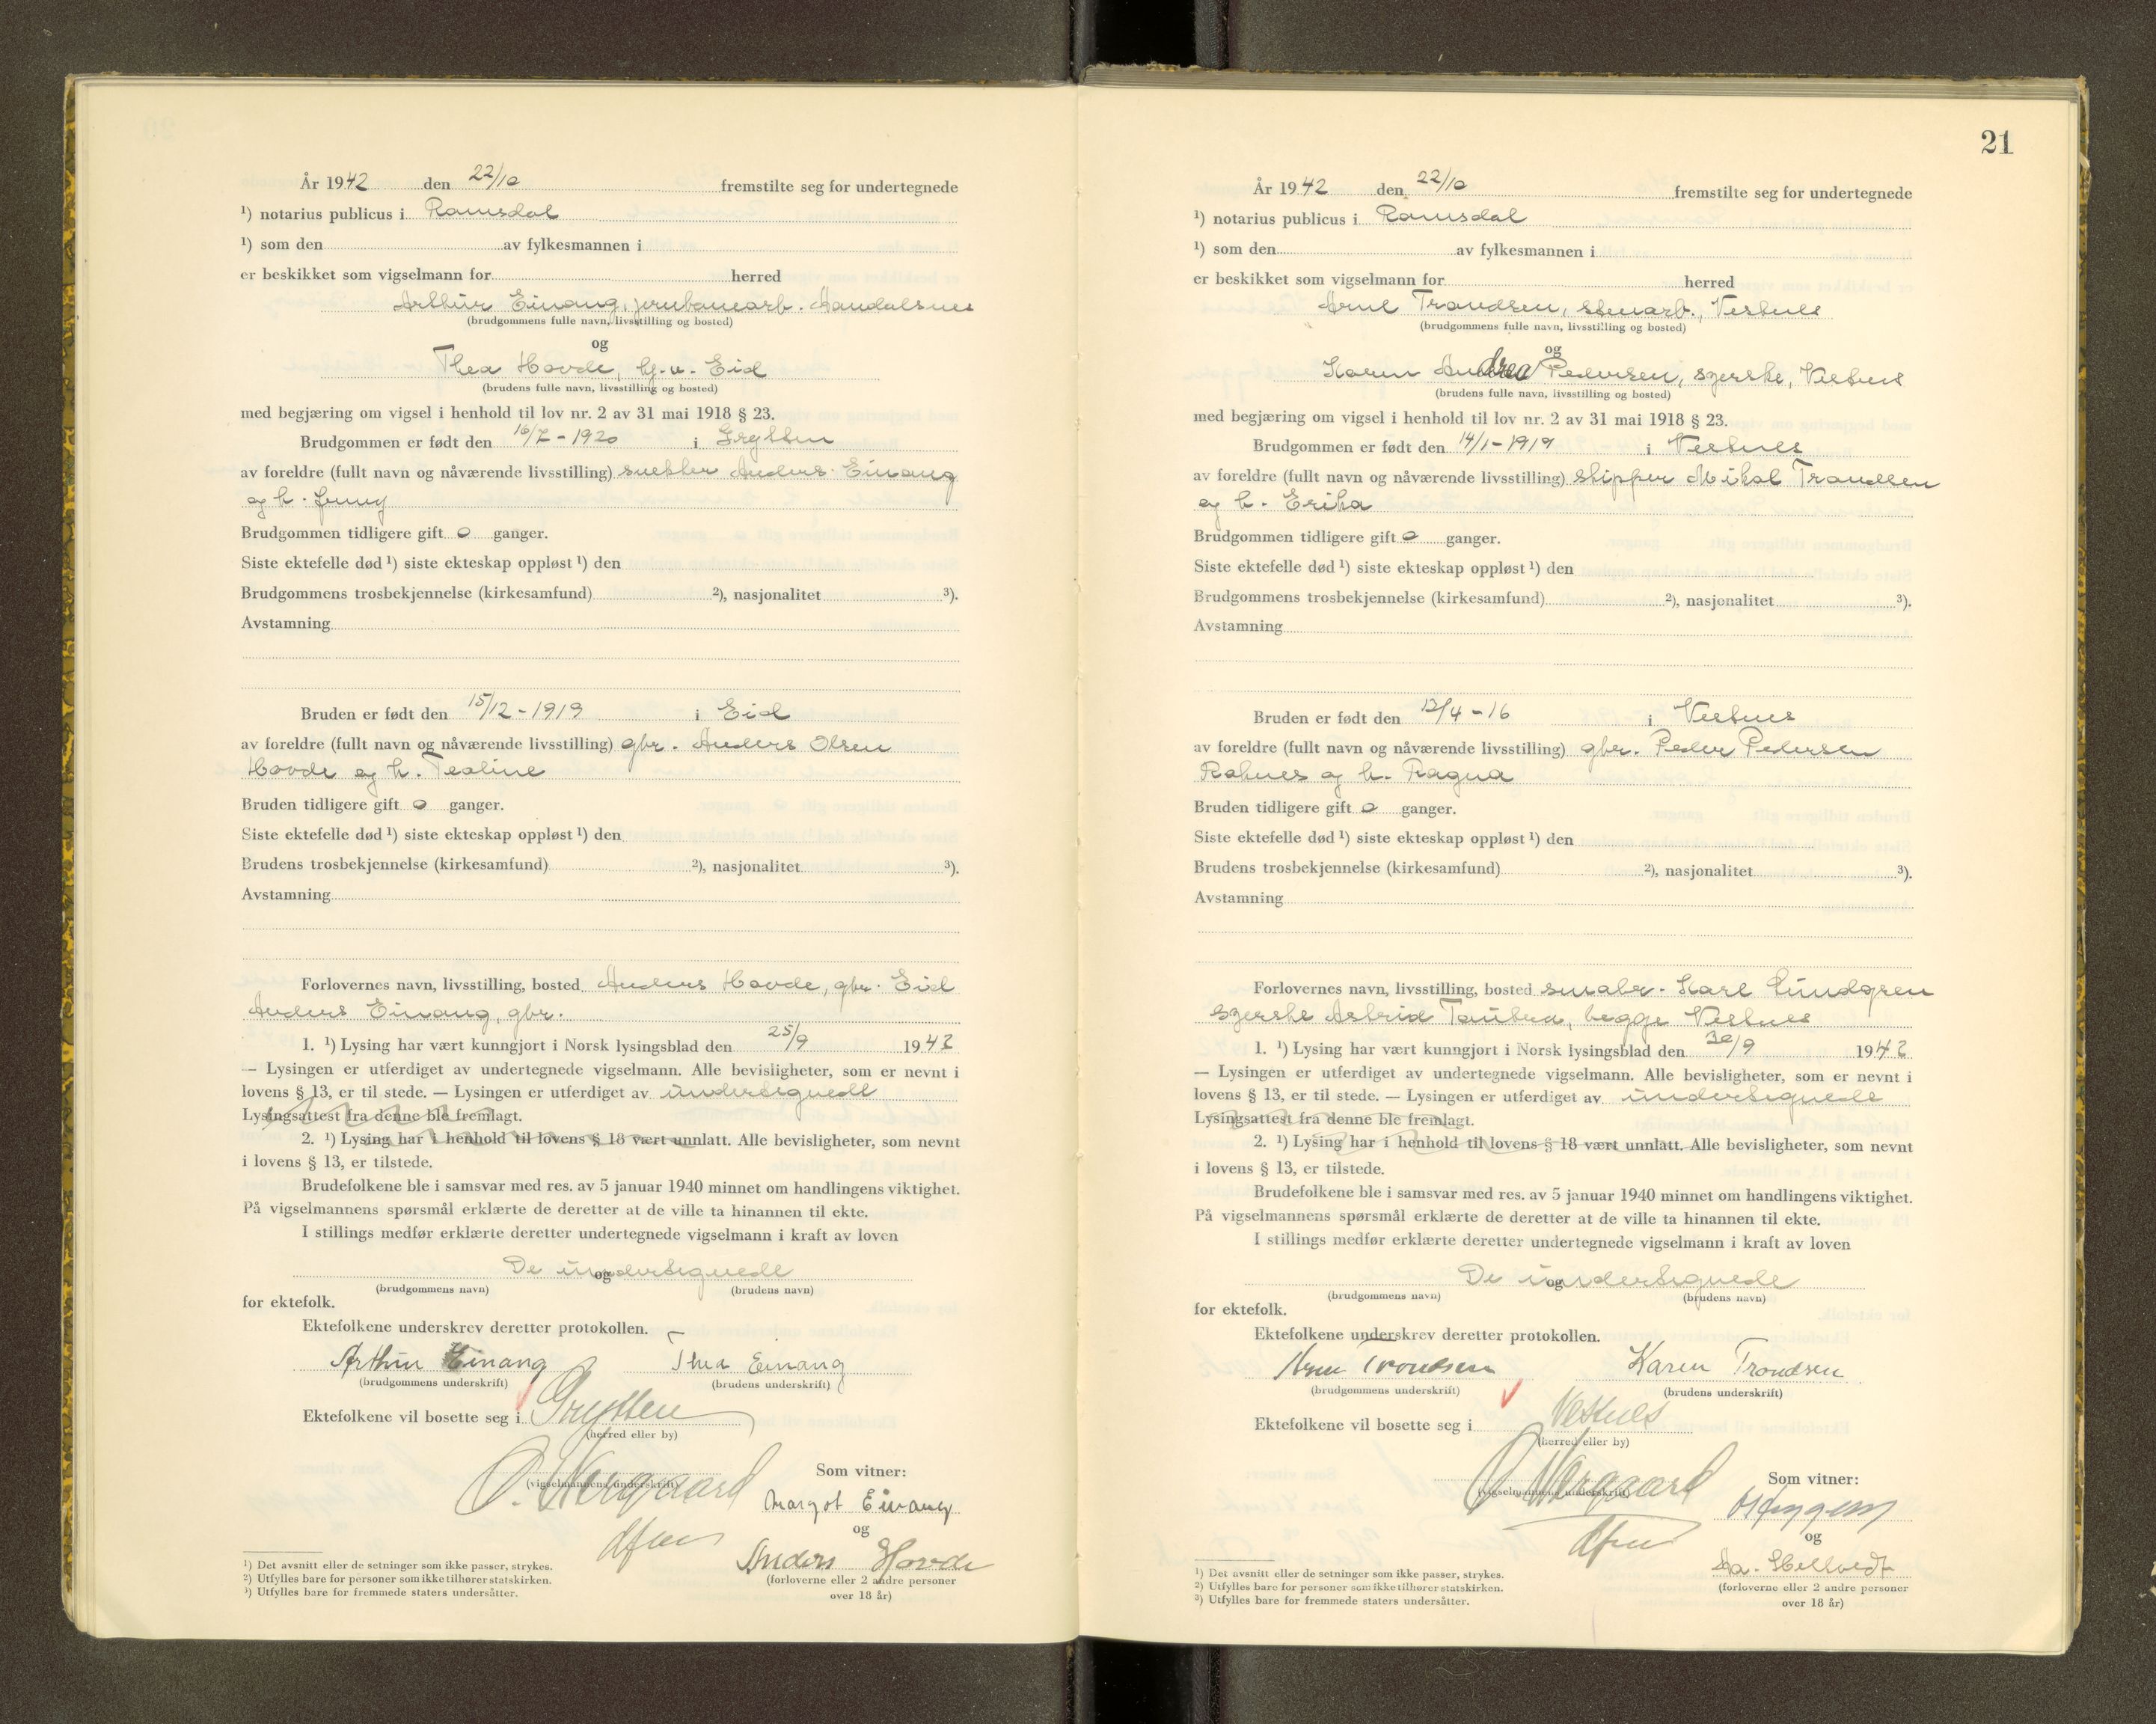 År 1942 den 22/10 fremstilte seg for undertegnede
¹) notarius publicus i Romsdal
¹) som den av fylkesmannen i
er beskikket som vigselmann for herred
Arthur Einang, jernbanearb. Aandalsnes
(brudgommens fulle navn, livsstilling og bosted)
og
Thea Hovde, hj.v. Eid
(brudens fulle navn, livsstilling og bosted)
med begjæring om vigsel i henhold til lov nr. 2 av 31 mai 1918 § 23.
Brudgommen er født den 16/7-1920 i Grytten
av foreldre (fullt navn og nåværende livsstilling) snekker Anders Einang
og h. Jenny
Brudgommen tidligere gift 0 ganger.
Siste ektefelle død ¹) siste ekteskap oppløst ¹) den
Brudgommens trosbekjennelse (kirkesamfund) ²), nasjonalitet ³).
Avstamning
Bruden er født den 15/12-1919 i Eid
av foreldre (fullt navn og nåværende livsstilling) gbr. Anders Olsen
Hovde og h. Tealine
Bruden tidligere gift 0 ganger.
Siste ektefelle død ¹) siste ekteskap oppløst ¹) den
Brudens trosbekjennelse (kirkesamfund) ²), nasjonalitet ³).
Avstamning
Forlovernes navn, livsstilling, bosted Anders Hovde, gbr. Eid
Anders Einang, gbr.
1. ¹) Lysing har vært kunngjort i Norsk lysingsblad den 25/9 1942
— Lysingen er utferdiget av undertegnede vigselmann. Alle bevisligheter, som er nevnt i
lovens § 13, er til stede. — Lysingen er utferdiget av undertegnede
Lysingsattest fra denne ble fremlagt.
2. ¹) Lysing har i henhold til lovens § 18 vært unnlatt. Alle bevisligheter, som nevnt
i lovens § 13, er tilstede.
Brudefolkene ble i samsvar med res. av 5 januar 1940 minnet om handlingens viktighet.
På vigselmannens spørsmål erklærte de deretter at de ville ta hinannen til ekte.
I stillings medfør erklærte deretter undertegnede vigselmann i kraft av loven
De undertegnede
og
(brudgommens navn) (brudens navn)
for ektefolk.
Ektefolkene underskrev deretter protokollen.
Arthur Einang Thea Einang
(brudgommens underskrift) (brudens underskrift)
Ektefolkene vil bosette seg i Grytten
(herred eller by)
Som vitner:
(vigselmannens underskrift)
Margot Einang
og
Anders Hovde
(forloverne eller 2 andre personer
over 18 år)
¹) Det avsnitt eller de setninger som ikke passer, strykes.
²) Utfylles bare for personer som ikke tilhører statskirken.
³) Utfylles bare for fremmede staters undersåtter.
21
År 1942 den 22/10 fremstilte seg for undertegnede
¹) notarius publicus i Romsdal
¹) som den av fylkesmannen i
er beskikket som vigselmann for herred
Arne Trondsen, stenarb., Vestnes
(brudgommens fulle navn, livsstilling og bosted)
og
Karen Andrea Pedersen, syerske, Vestnes
(brudens fulle navn, livsstilling og bosted)
med begjæring om vigsel i henhold til lov nr. 2 av 31 mai 1918 § 23.
Brudgommen er født den 14/1-1919 i Vestnes
av foreldre (fullt navn og nåværende livsstilling) skipper Mikal Trondsen
og h. Erika
Brudgommen tidligere gift 0 ganger.
Siste ektefelle død ¹) siste ekteskap oppløst ¹) den
Brudgommens trosbekjennelse (kirkesamfund) ²), nasjonalitet ³).
Avstamning
Bruden er født den 12/4-16 i Vestnes
av foreldre (fullt navn og nåværende livsstilling) gbr. Peder Pedersen
Roknes og h. Ragna
Bruden tidligere gift 0 ganger.
Siste ektefelle død ¹) siste ekteskap oppløst ¹) den
Brudens trosbekjennelse (kirkesamfund) ²), nasjonalitet ³).
Avstamning
Forlovernes navn, livsstilling, bosted småbr. Karl Lundgren
syerske Astrid begge Vestnes
1. ¹) Lysing har vært kunngjort i Norsk lysingsblad den 30/9 1942
— Lysingen er utferdiget av undertegnede vigselmann. Alle bevisligheter, som er nevnt i
lovens § 13, er til stede. — Lysingen er utferdiget av undertegnede
Lysingsattest fra denne ble fremlagt.
2. ¹) Lysing har i henhold til lovens § 18 vært unnlatt. Alle bevisligheter, som nevnt
i lovens § 13, er tilstede.
Brudefolkene ble i samsvar med res. av 5 januar 1940 minnet om handlingens viktighet.
På vigselmannens spørsmål erklærte de deretter at de ville ta hinannen til ekte.
I stillings medfør erklærte deretter undertegnede vigselmann i kraft av loven
De undertegnede
og
(brudgommens navn) (brudens navn)
for ektefolk.
Ektefolkene underskrev deretter protokollen.
Arne Trondsen Karen Trondsen
(brudgommens underskrift) (brudens underskrift)
Ektefolkene vil bosette seg i Vestnes
(herred eller by)
Som vitner:
(vigselmannens underskrift)
og
(forloverne eller 2 andre personer
over 18 år)
¹) Det avsnitt eller de setninger som ikke passer, strykes.
²) Utfylles bare for personer som ikke tilhører statskirken.
³) Utfylles bare for fremmede staters undersåtter.